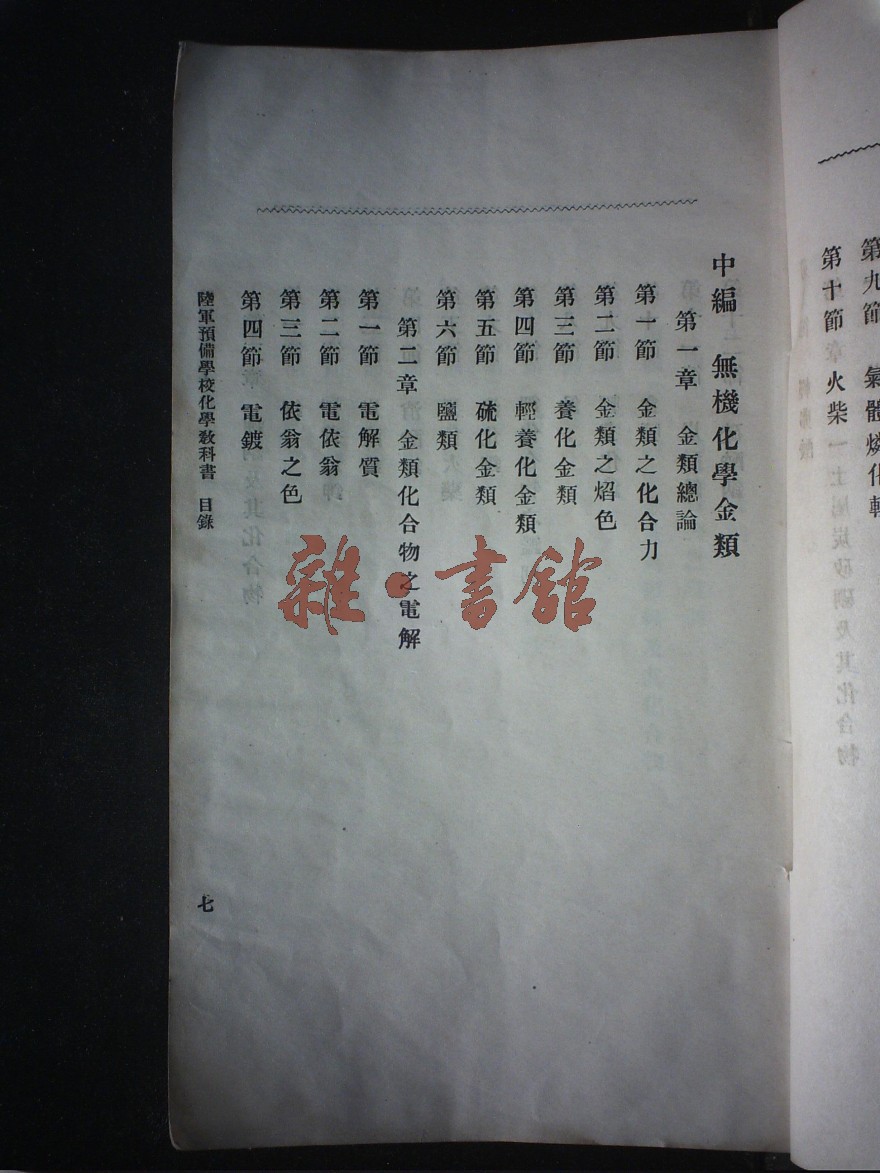 第九節　氣體燐化輕
第十節　火柴
中編　無機化學金類
第一章　金類總論
第一節　金類之化合力
第二節　金類之焰色
第三節　養化金類
第四節　輕養化金類
第五節　硫化金類
第六節　鹽類
第二章　金類化合物之電解
第一節　電解質
第二節　電依翁
第三節　依翁之色
第四節　電鍍
陸軍預備學校化學教科書　目錄
七
雜·書館